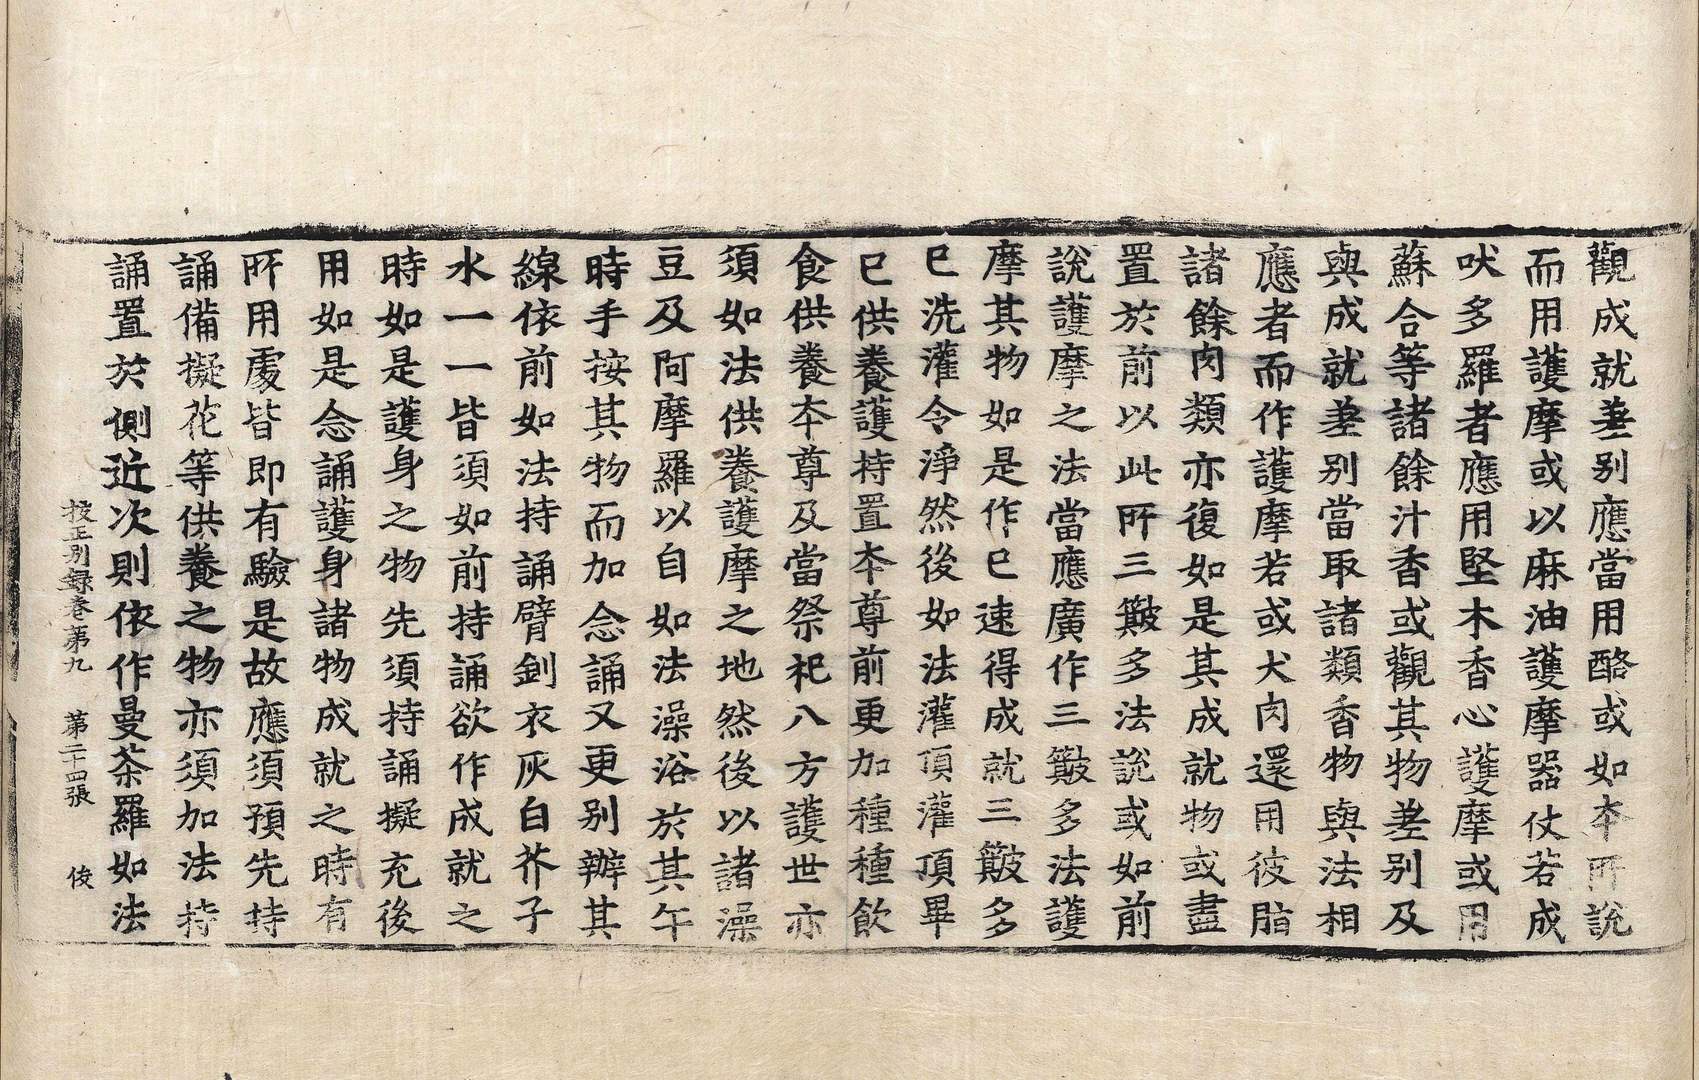 觀成就差别應當用酪或如本所說
而用護摩或以麻油護摩器仗若成
吠多羅者應用堅木香心護摩或用
蘇合等諸餘汁香或觀其物差别及
與成就差别當取諸類香物與法相
應者而作護摩若或犬肉還用彼脂
諸餘肉類亦復如是其成就物或盡
置於前以此所三簸多法說或如前
說護摩之法當應廣作三簸多法護
摩其物如是作已速得成就三簸多
已洗灌令淨然後如法灌頂灌頂畢
已供養護持置本尊前更加種種飲
食供養本尊及當祭祀八方護世亦
須如法供養護摩之地然後以諸澡
豆及阿摩羅以自如法澡浴於其午
時手按其物而加念誦又更别辦其
線依前如法持誦臂釧衣灰白芥子
水一一皆須如前持誦欲作成就之
時如是護身之物先須持誦擬充後
用如是念誦護身諸物成就之時有
所用處皆即有驗是故應須預先持
誦備擬花等供養之物亦須加法持
誦置於側近次則依作曼荼羅如法
挍正别錄卷第九　第二十四張　俊